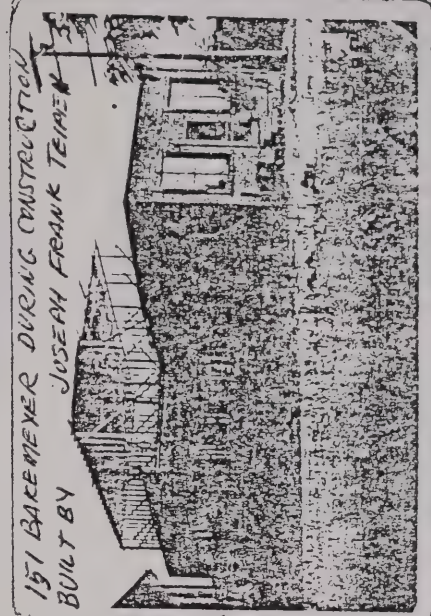 151 BAKEMEYER DURING CONSTRUCTION
BUILT BY JOSEPH FRANK